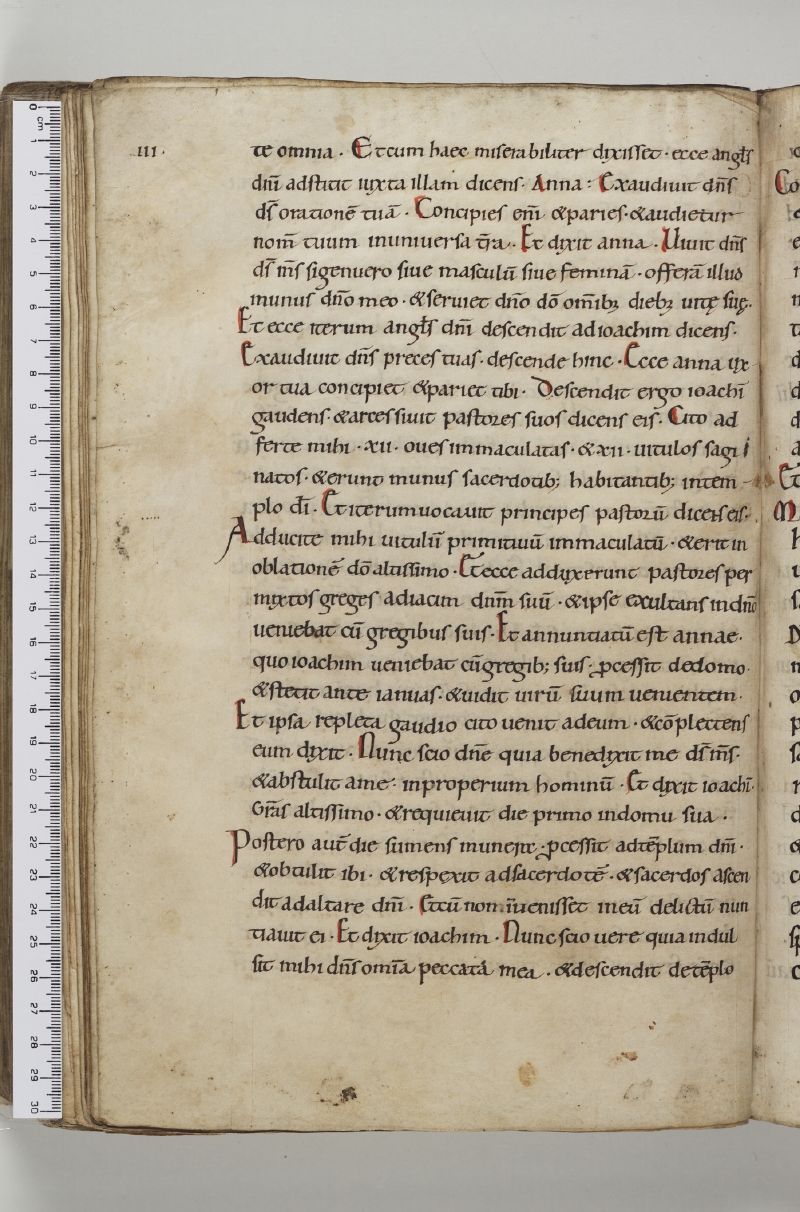 .III.
te omnia · Et cum haec miserabiliter dixisset · ecce angl̄s
dn̄i adstitit iuxta illam dicens · Anna : Exaudiuit dn̄s
d̄s orationē tuā · Concipies em̄ & paries · & audietur
nom̄ tuum in uniuersa t̄ra · Et dixit anna · Uiuit dn̄s
d̄s m̄s si genuero siue masculū siue feminā · offerā illud
munus dn̄o meo · & seruiet dn̄o dō om̄ib; dieb; uitę suę ·
Et ecce iterum angl̄s dn̄i descendit ad ioachim dicens ·
Exaudiuit dn̄s preces tuas · descende hinc · Ecce anna ux
or tua concipiet & pariet tibi · Descendit ergo ioachī
gaudens · & arcessiuit pastores suos dicens eis · Cito ad
ferte mihi · xii · oues immaculatas · & xii · uitulos sagi
natos · & erunt munus sacerdotib; habitantib; in tem-
plo dī · Et iterum uocauit principes pastorū dicens eis ·
Adducite mihi uitulū primitiuū immaculatū · & erit in
oblationē dō altissimo · Et ecce adduxerunt pastores per
mixtos greges ad iacim dnm̄ suū · & ipse exultans in dn̄o
ueniebat cū gregibus suis · Et annuntiatū est annae ·
quo ioachim ueniebat cū gregib; suis · ꝓcessit de domo ·
& stetit ante ianuas · & uidit uirū suum uenientem ·
Et ipsa repleta gaudio cito uenit ad eum · & cōplectens
eum dixit · Nunc scio dn̄e quia benedixit me d̄s m̄s ·
& abstulit a me : inproperium hominū · Et dixit ioachī ·
Gr̄as altissimo · & requieuit die primo in domu sua ·
Postero aut̄ die sumens munera · ꝓcessit ad tēplum dn̄i ·
& obtulit ibi · & respexit ad sacerdotē · & sacerdos ascen
dit ad altare dn̄i · Et cū non inuenisset meū delictū nun
tiauit ei · Et dixit ioachim · Nunc scio uere quia indul
sit mihi dn̄s om̄ia peccata mea · & descendit de tēplo